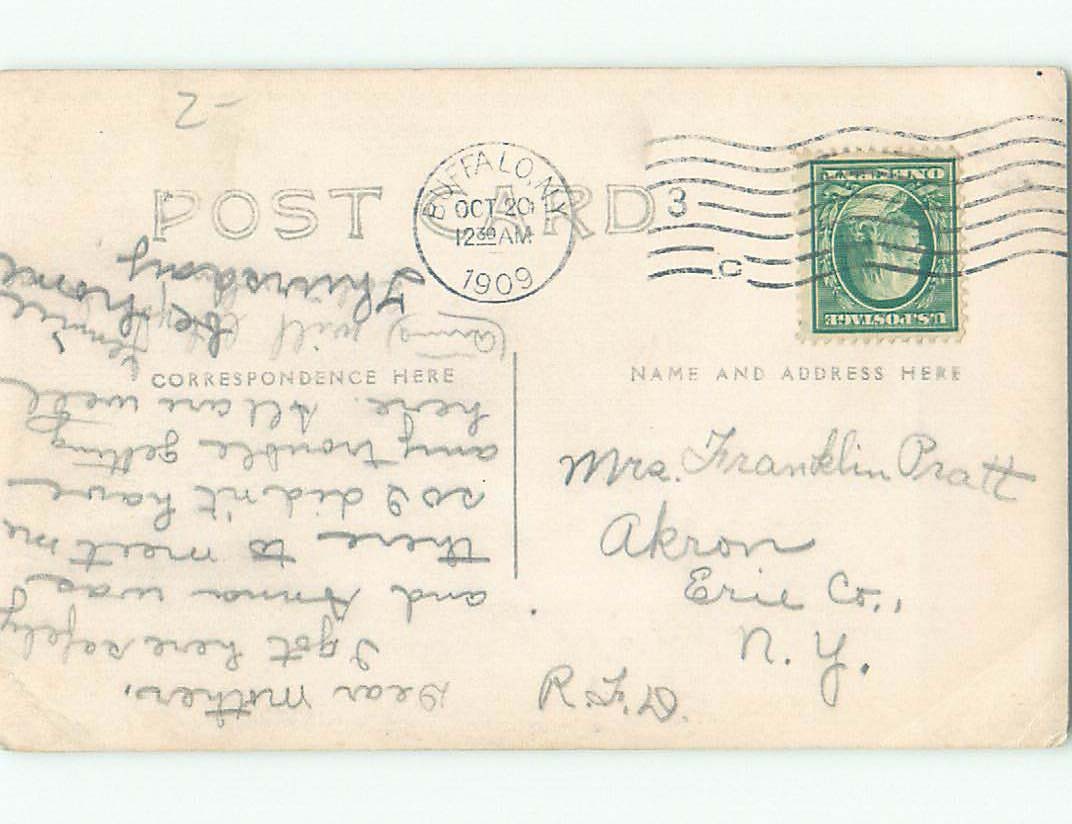 -2
POST CARD
BUFFALO, N.Y.
OCT 20
12 30 AM
1909
3
C
U.S. POSTAGE
ONE CENT
CORRESPONDENCE HERE
NAME AND ADDRESS HERE
Mrs. Franklin Pratt
Akron
Erie Co.,
N. Y.
R.F.D.
Dear Mother,
I got here safely
and Anna was
there to meet me
so I didn't have
any trouble getting
here. All are well
will be home
Thursday